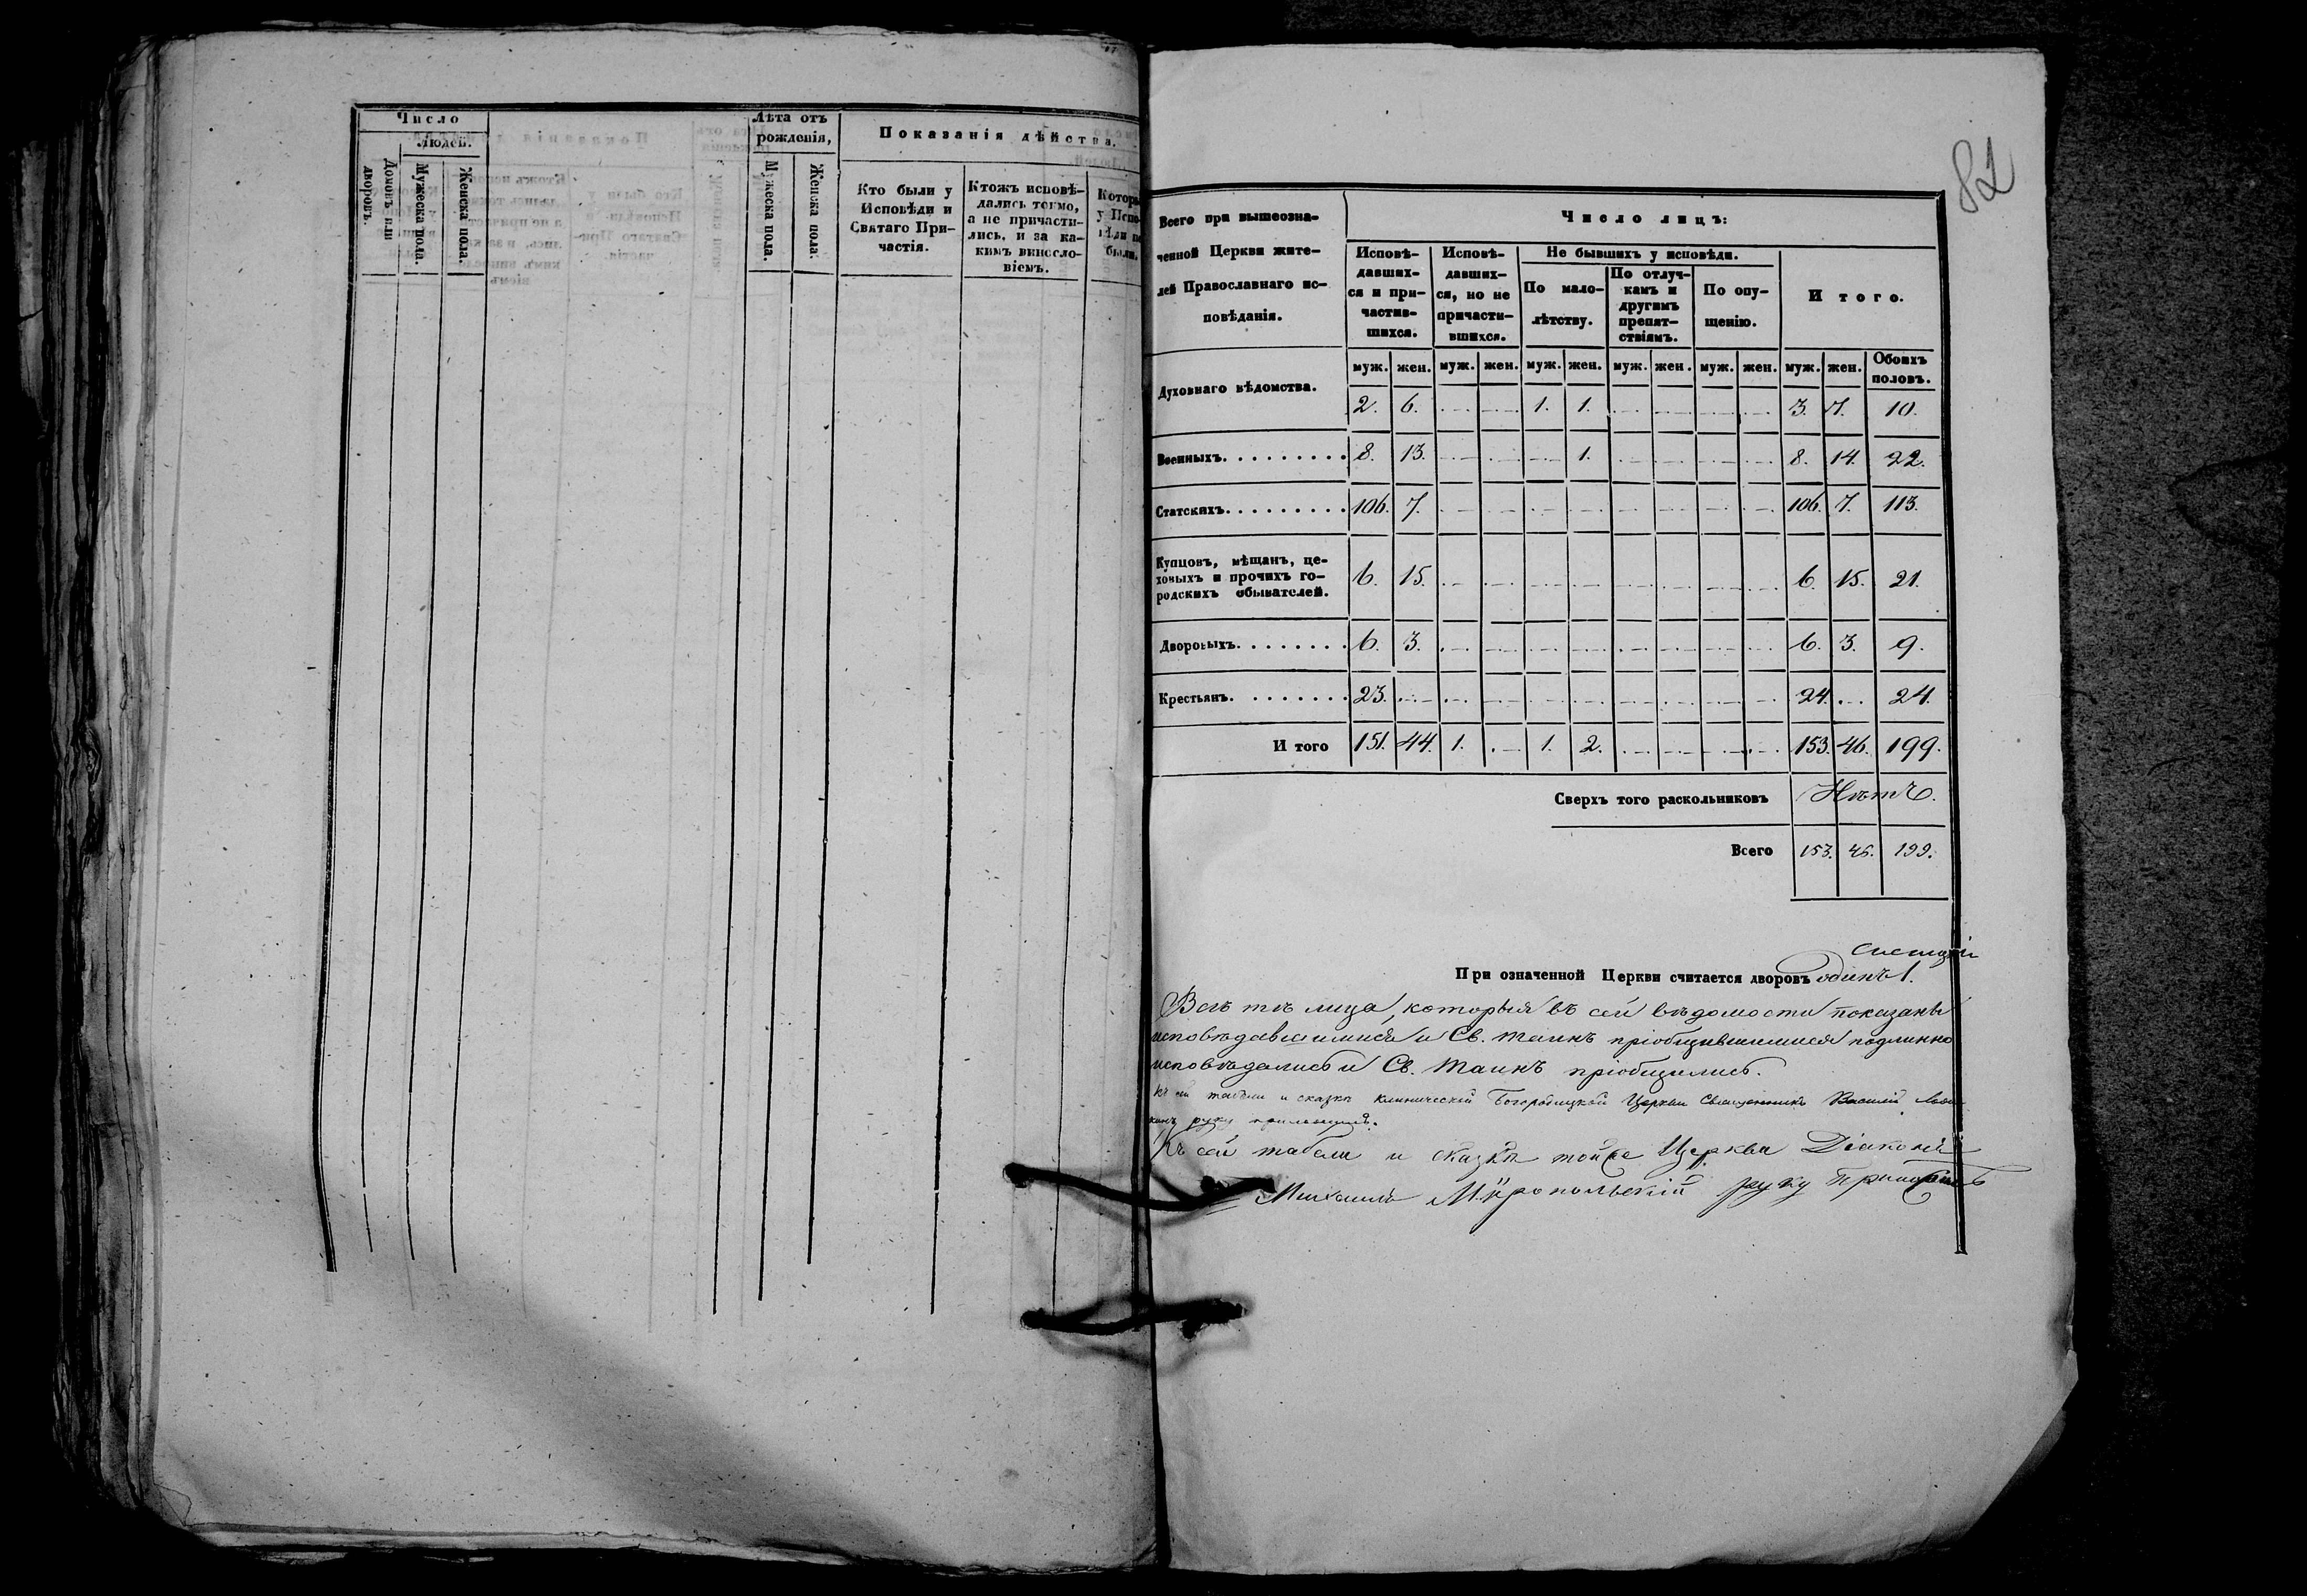 Число
Людей.
Домовъ или дворовъ.
Мужеска пола.
Женска пола.
Лѣта отъ рожденія,
Мужеска пола.
Женска пола.
Показанія дѣйства.
Кто были у
Исповѣди и
Святаго При-
частія.
Ктожъ исповѣ-
дались токмо,
а не причасти-
лись, и за ка-
кимъ винссло-
віемъ.
82
Всего при вышеозна-
ченной Церкви жите-
лей Православнаго ис-
повѣданія.
Число лицъ:
Исповѣ-
давших-
ся и при-
частив-
шихся.
Исповѣ-
давших-
ся, но не
причасти-
вшихся.
Не бывшихъ у исповѣди.
По мало-
лѣтству.
По отлуч-
камъ и
другимъ
препят-
ствіямъ.
По опу-
щенію.
Итого.
муж. жен. муж. жен. муж. жен. муж. жен. муж. жен. муж. жен. Обоихъ половъ.
Духовнаго вѣдомства. 2. 6. 1. 1. 3. 7. 10.
Военныхъ. 8. 13. 1. 8. 14. 22.
Статскихъ. 106. 7. 106. 7. 113.
Купцовъ, мѣщанъ, це-
ховыхъ и прочихъ го-
родскихъ обывателей. 6. 15. 6. 15. 21.
Дворовыхъ. 6. 3. 6. 3. 9.
Крестьянъ. 23. 24. 24.
И того 151. 44. 1. 1. 2. 153. 46. 199.
Сверхъ того раскольниковъ Нѣтъ.
Всего 153. 46. 199.
При означенной Церкви считается дворовъ одинъ 1.
Всѣ тѣ лица, которыя въ сей вѣдомости показаны
исповѣдавшимися и Св. Таинъ пріобщившимися подлинно
исповѣдались и Св. Таинъ пріобщились.
Къ сей табели и сказкѣ Клинической Богородицкой Церкви Священникъ Василій
руку приложилъ.
Къ сей табели и сказкѣ тойже Церкви Діаконъ
Михаилъ Миропольскій руку приложилъ